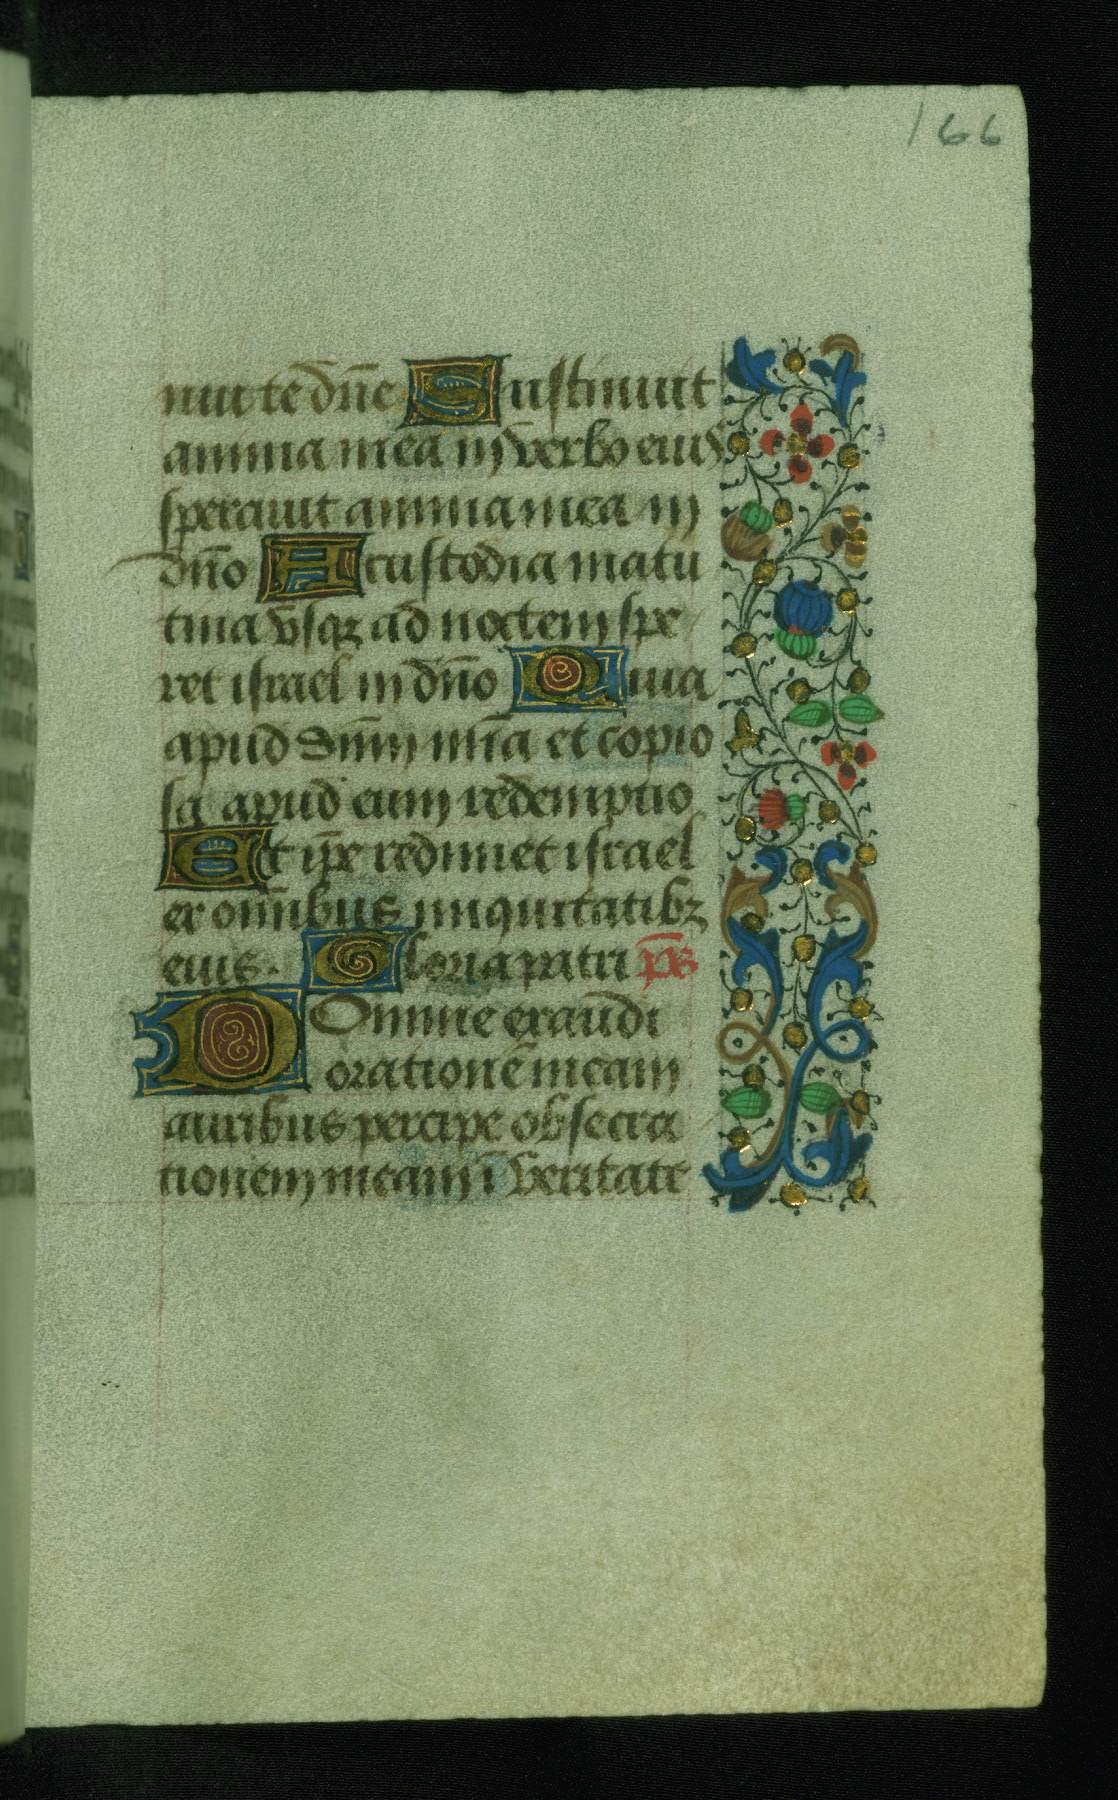 166
nui te dñe Sustinuit
anima mea in verbo eius
sperauit anima mea in
dño A custodia matu
tina vsqꝫ ad noctem spe
ret israel in dño Quia
apud dñm mĩa et copio
sa apud eum redemptio
Et ip̃e redimet israel
ex om̃ibus iniquitatibꝫ
eius. Gloria patri p̃s
Domine exaudi
orationẽ meam
auribus percipe obsecra
tionem meam ĩ veritate